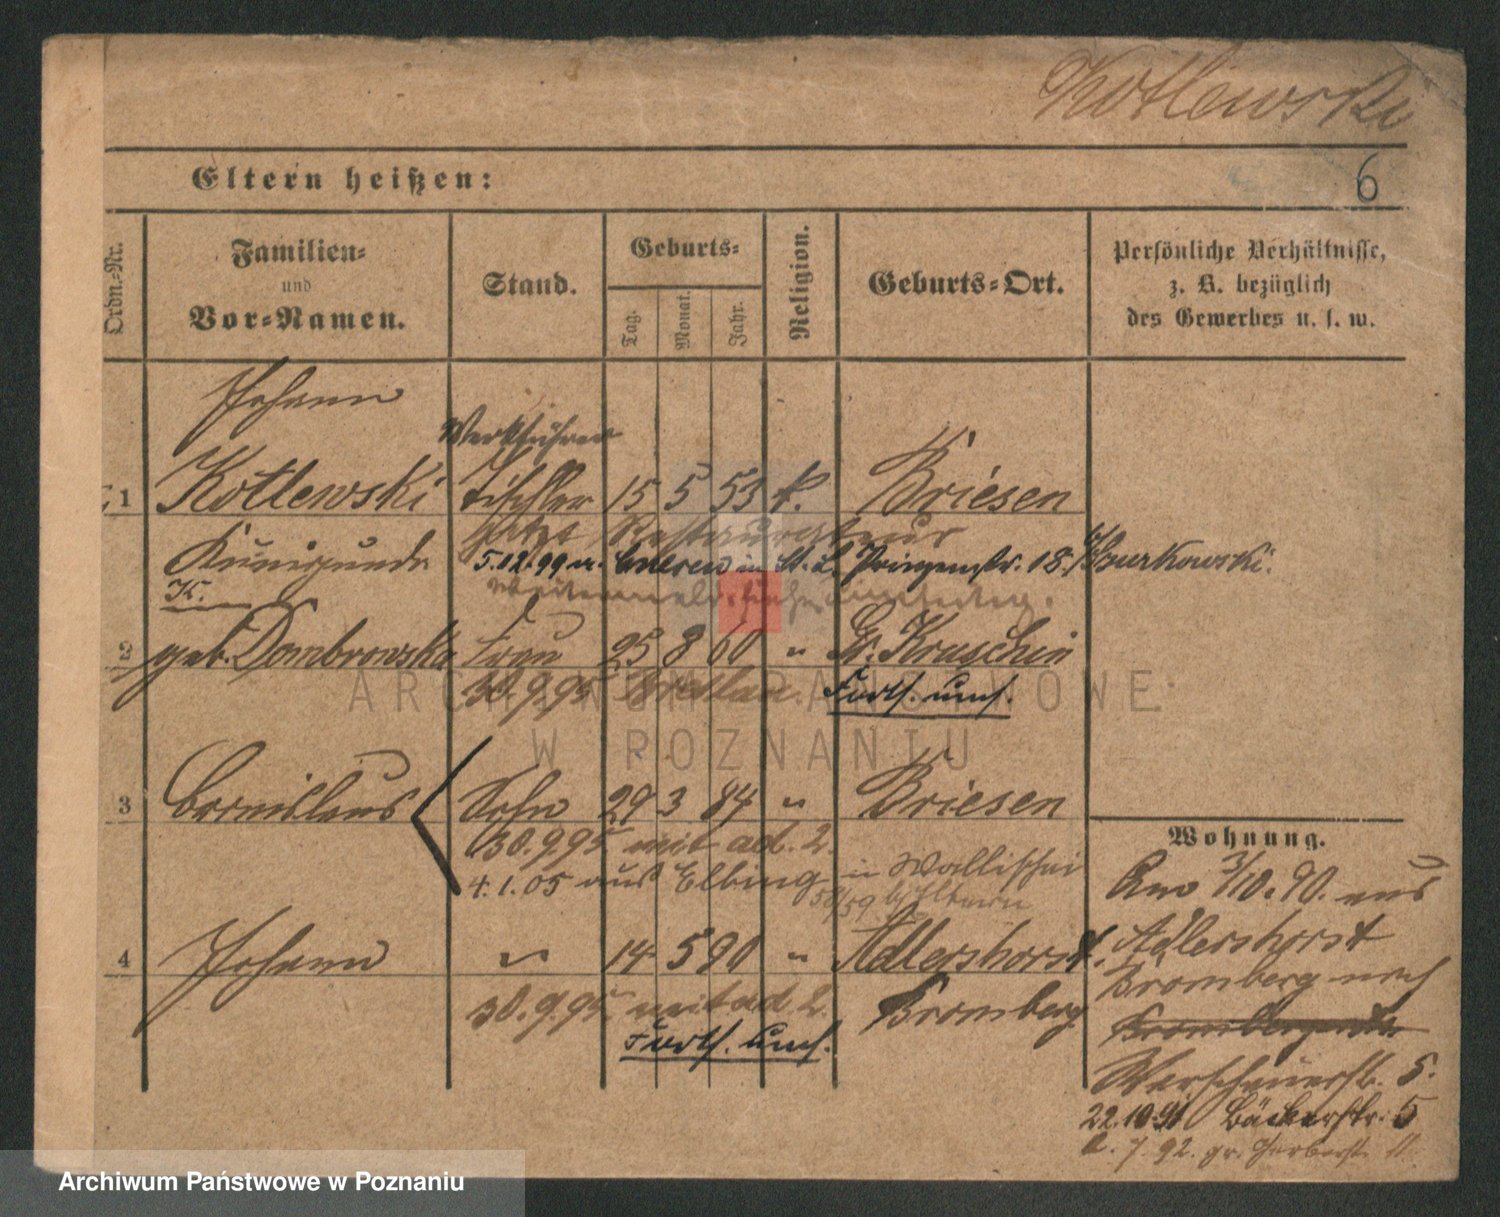 Kotlewski
6
Eltern heißen:
Ordn.-Nr.
Familien-
und
Vor-Namen.
Stand.
Geburts-
Tag.
Monat.
Jahr.
Religion.
Geburts-Ort.
Persönliche Verhältnisse,
z. B. bezüglich
des Gewerbes u. s. w.
Johann
Werkführer
1 Kotlewski Tischler 15 5 53 k. Briesen
jetzt Restaurateur
Kunigunde
5.12.99 in St. L. Prinzenstr. 18. / Burkowski.
K.
2 geb. Dombrowska Frau 25 8 60 " Gr. Kruschin
30.9.95 Breslau. Furth. umf.
ARCHIWUM PAŃSTWOWE
W POZNANIU
3 Bronislaus Sohn 29 3 84 " Briesen
30.9.95 mit ad. 2.
4.1.05 aus Elbing in Wallischei
58/59 b/ Eltern
4 Johann " 14 5 90 " Adlershorst,
Bromberg
30.9.95 mit ad. 2.
Furth. umf.
Wohnung.
Am 3/10.90. aus
Adlershorst
Bromberg nach
5.
22.10.91 Bäckerstr. 5
7.92. gr. Gerberstr. 11.
Archiwum Państwowe w Poznaniu